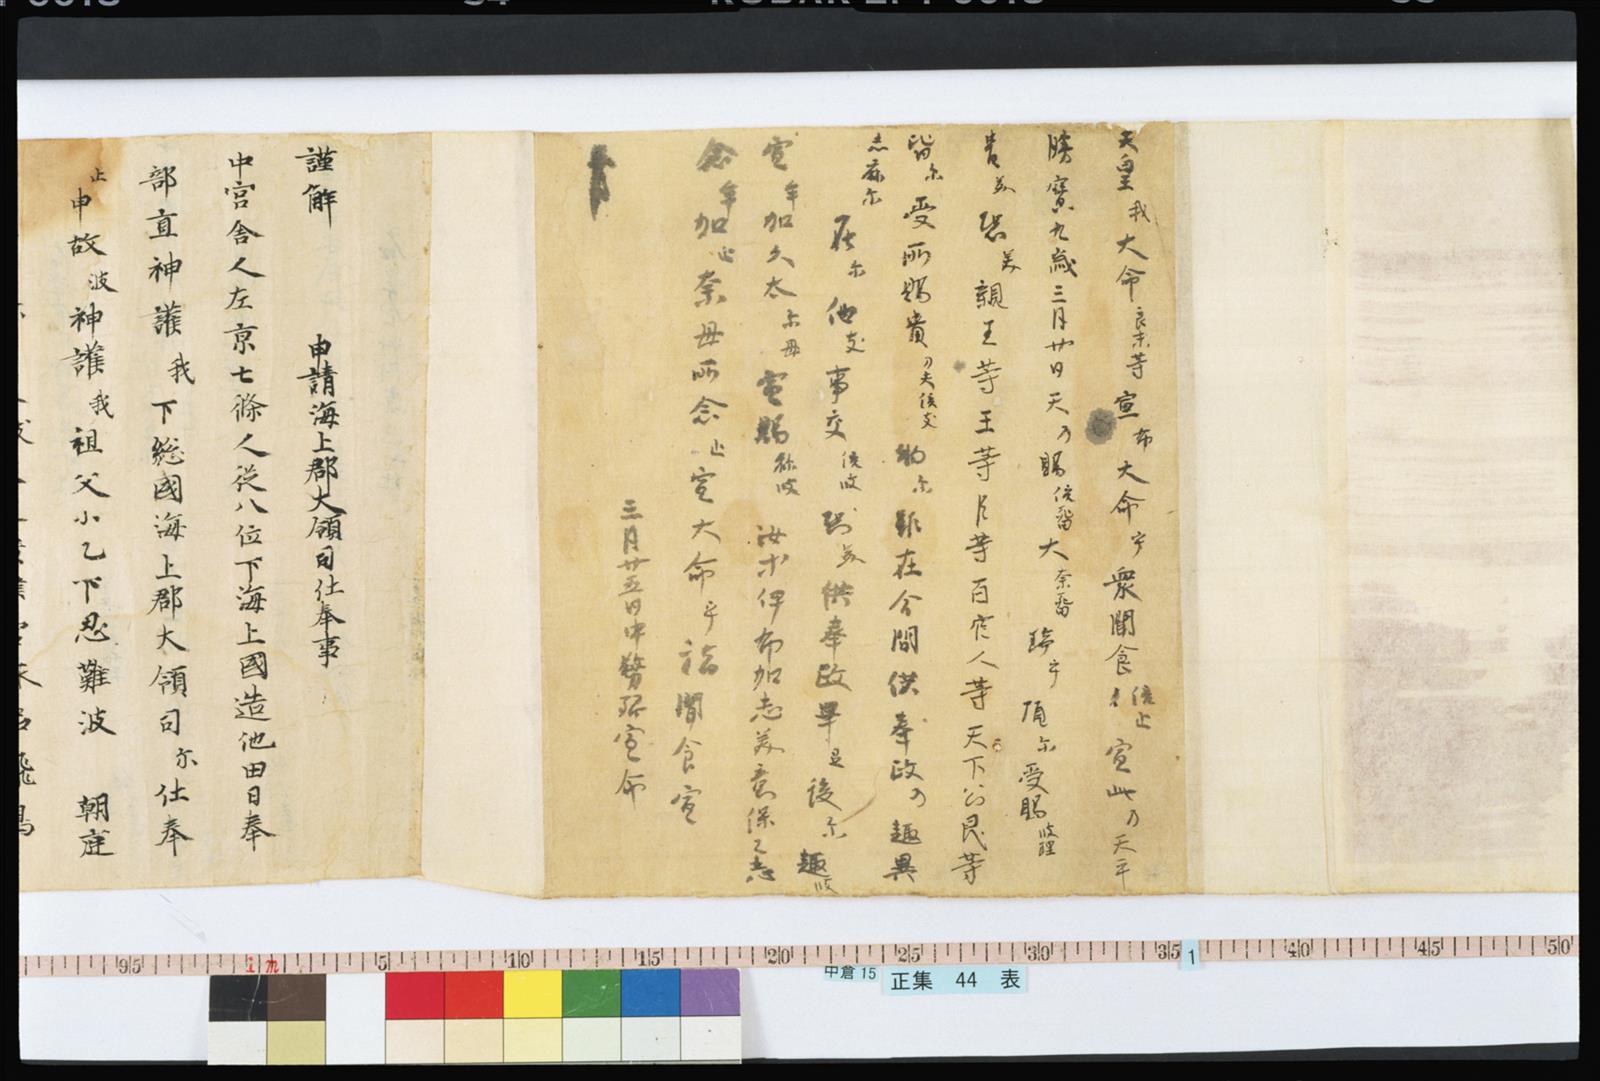 天皇我大命良末等宣布大命乎衆聞食倍止宣此乃天平
勝寶九歳三月廿日天乃賜倍留大奈留瑞乎頂尓受賜波理
貴美恐美親王等王等臣等百官人等天下公民等
皆尓受所賜貴刀夫倍支物尓雖在今間供奉政乃趣異
志麻尓在尓他支事交倍波恐美供奉政畢弖後尓趣波
宣牟加久太尓母宣賜祢波汝等伊布加志美意保々志
念牟加止奈母所念止宣大命乎諸聞食宣
三月廿五日中務卿宣命
謹解 申請海上郡大領司仕奉事
中宮舎人左京七條人従八位下海上國造他田日奉
部直神護我下総國海上郡大領司尓仕奉
止申故波神護我祖父小乙下忍難波 朝庭
中倉 15
正集 44 表
1
95 1m 5 10 15 20 25 30 35 40 45 50